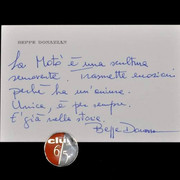 La Moto è una scultura
semovente. Trasmette emozioni
perché ha un'anima.
Unica, è per sempre.
E' già nella storia.
Beppe
club